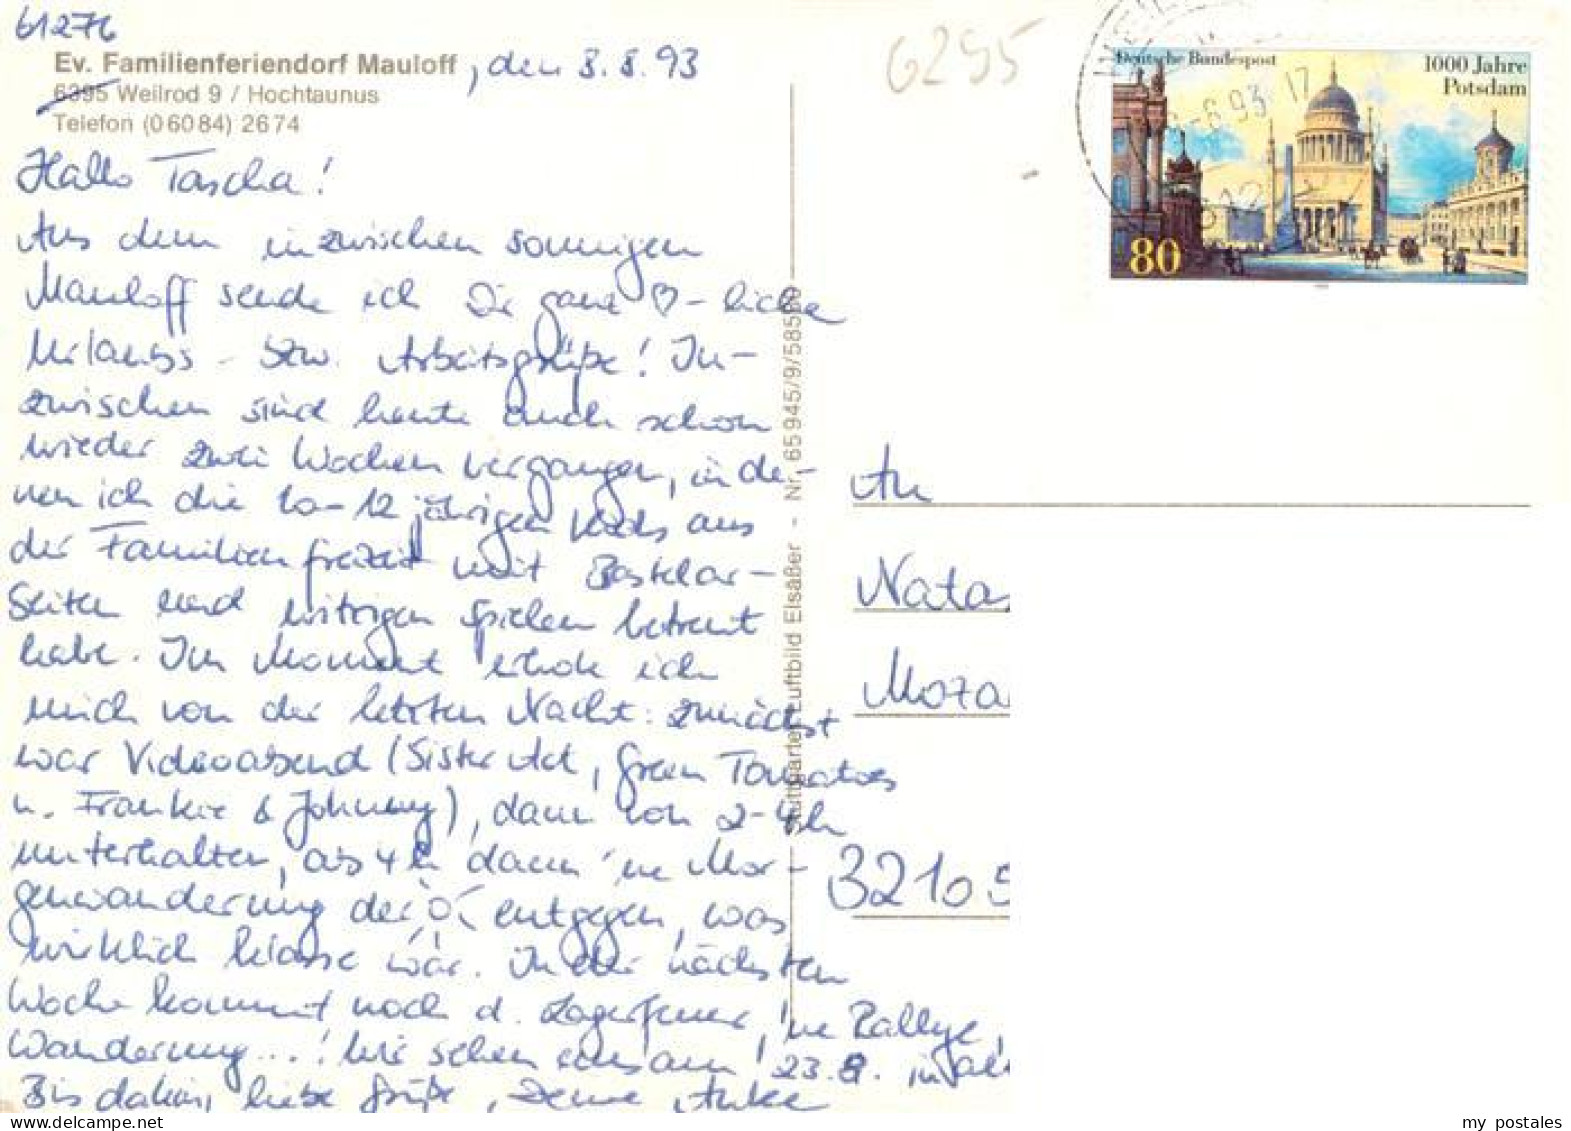 61276
Ev. Familienferiendorf Mauloff, den 8.8.93
6395 Weilrod 9 / Hochtaunus
Telefon (06084) 2674
6295
Deutsche Bundespost
1000 Jahre
Potsdam
80
-6.93 17
612
Hallo Tascha!
Aus dem inzwischen sonnigen
Mauloff sende ich Dir ganz ♡-liche
Urlaubs- bzw. Arbeitsgrüße! In-
zwischen sind heute auch schon
wieder zwei Wochen vergangen, in de-
nen ich die 10-12 jährigen Kids aus
der Familienfreizeit mit Bastelar-
beiten und witzigen Spielen betreut
habe. Im Moment erhole ich
mich von der letzten Nacht: zunächst
war Videoabend (Sister Act, Green Tomatoes
u. Frankie & Johnny), dann von 2-4h
unterhalten, ab 4h dann 'ne Mor-
genwanderung der entgegen, was
wirklich klasse war. In der nächsten
Woche kommt noch d. Lagerfeuer, 'ne Rallye,
Wanderung...! Wir sehen uns am 23.8. in
Bis dahin, liebe Grüße, Deine Anke
Stuttgarter Luftbild Elsäßer - Nr. 65945/9/58589
An
Nata
Moza
32105
my postales